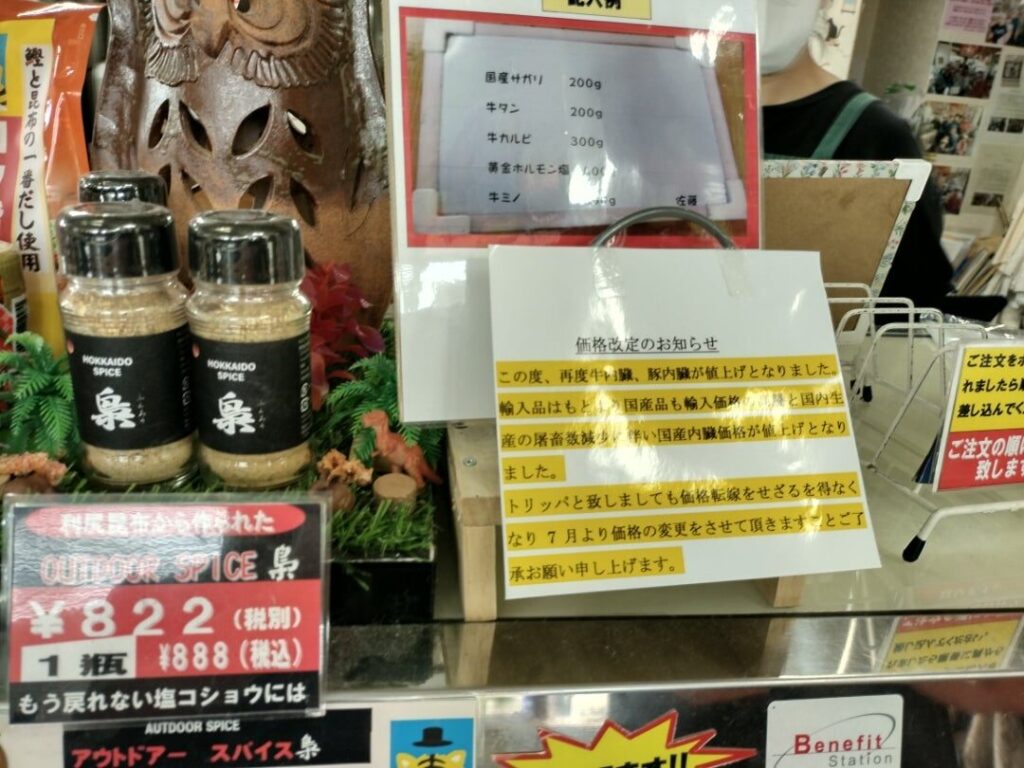 記入例
国産サガリ 200g
牛タン 200g
牛カルビ 300g
黄金ホルモン塩
牛ミノ
佐藤
鰹と昆布の一番だし使用
HOKKAIDO
SPICE
梟
HOKKAIDO
SPICE
梟
価格改定のお知らせ
この度、再度牛内臓、豚内臓が値上げとなりました。
輸入品はもとより国産品も輸入価格の と国内生
産の屠畜数減少に伴い国産内臓価格が値上げとなり
ました。
トリッパと致しましても価格転線をせざるを得なく
なり 7 月より価格の変更をさせて頂きます ご了
承お願い申し上げます。
ご注文を
れましたら
差し込んでく
ご注文の順
致しま
利尻昆布から作られた
OUTDOOR SPICE 梟
¥822(税別)
1瓶 ¥888(税込)
もう戻れない塩コショウには
AUTDOOR SPICE
アウトドアー スパイス梟
Benefit
Station